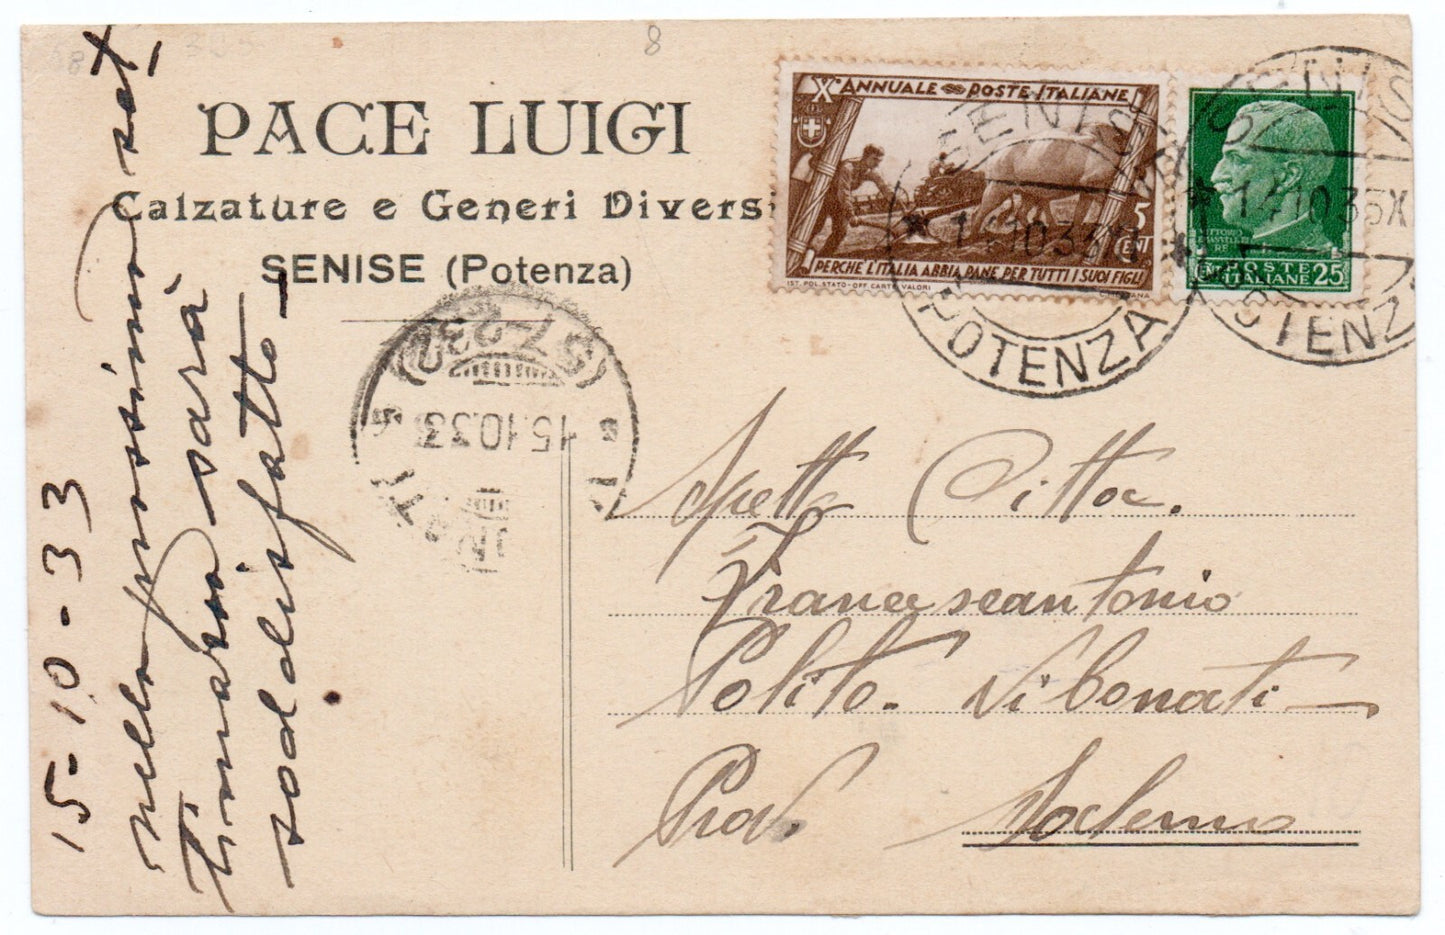 8
PACE LUIGI
Calzature e Generi Diversi
SENISE (Potenza)
X° ANNUALE POSTE ITALIANE
5
CENT
PERCHE L'ITALIA ABBIA PANE PER TUTTI I SUOI FIGLI
IST. POL. STATO - OFF. CARTE VALORI
VITTORIO
EMANUELE III
RE
POSTE
ITALIANE 25
CENT
SENISE
* 14.10.33 XI *
POTENZA
SENISE
* 14.10.33 XI
POTENZA
(57-232)
15.10.33
Spett. Ditta
Francescantonio
Polito. Vibonati -
Prov. Salerno
15-10-33
nella prossima set,
timana sarà
soddisfatto -